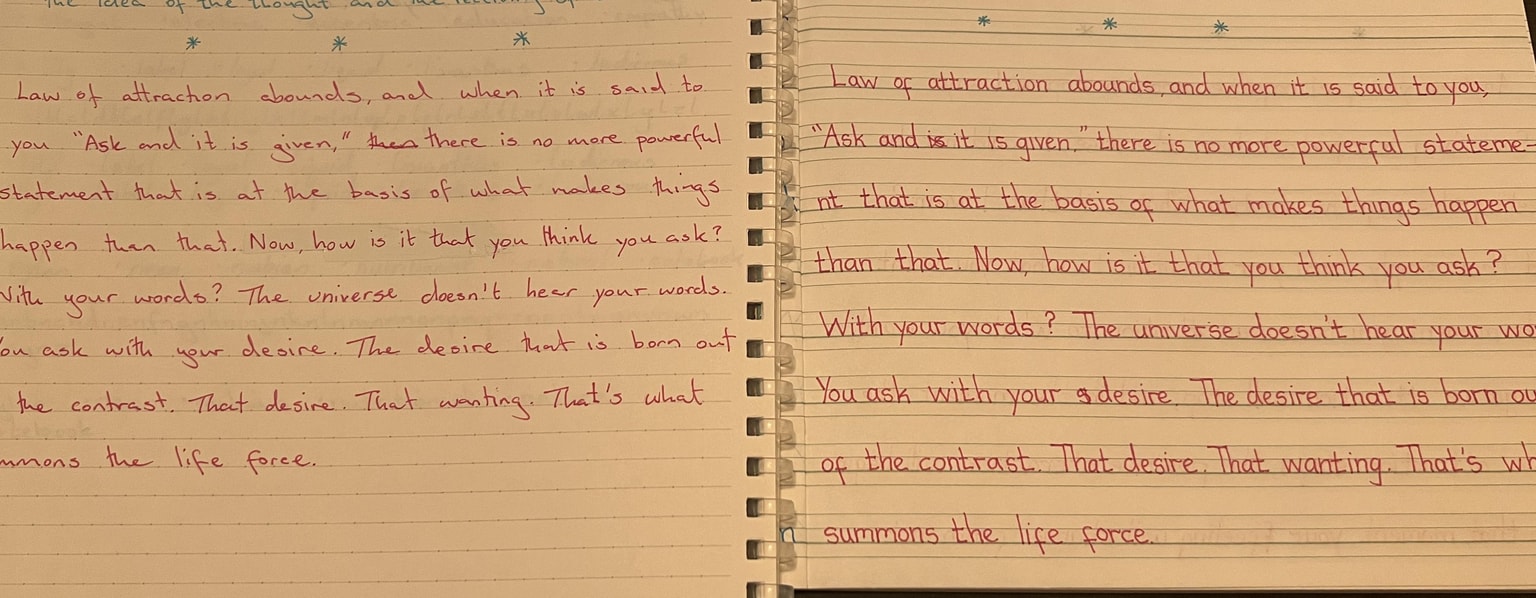 the idea of the thought and the
* * *
Law of attraction abounds, and when it is said to
you "Ask and it is given," then there is no more powerful
statement that is at the basis of what makes things
happen than that. Now, how is it that you think you ask?
With your words? The universe doesn't hear your words.
You ask with your desire. The desire that is born out
the contrast. That desire. That wanting. That's what
mmons the life force.
* * *
Law of attraction abounds, and when it is said to you,
"Ask and is it is given," there is no more powerful stateme-
nt that is at the basis of what makes things happen
than that. Now, how is it that you think you ask?
With your words? The universe doesn't hear your wo
You ask with your desire. The desire that is born ou
of the contrast. That desire. That wanting. That's wh
summons the life force.